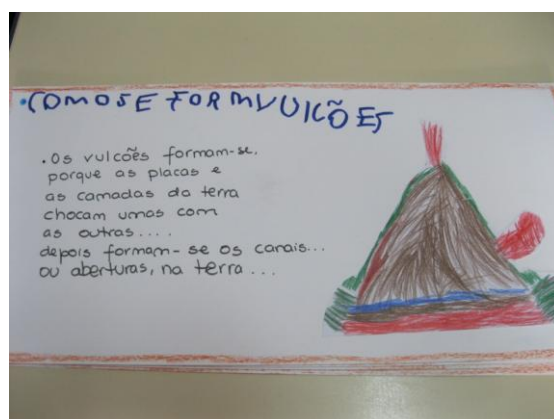 • COMO SE FORM VULCÕES
. Os vulcões formam-se.
porque as placas e
as camadas da terra
chocam umas com
as outras....
depois formam-se os canais...
ou aberturas, na terra...